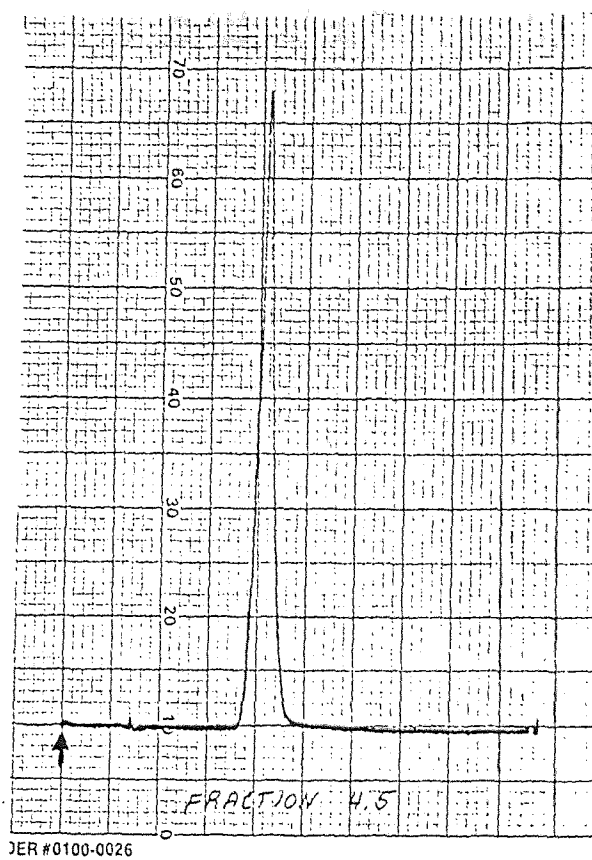 70
60
50
40
30
20
10
0
FRACTION 4.5
DER #0100-0026